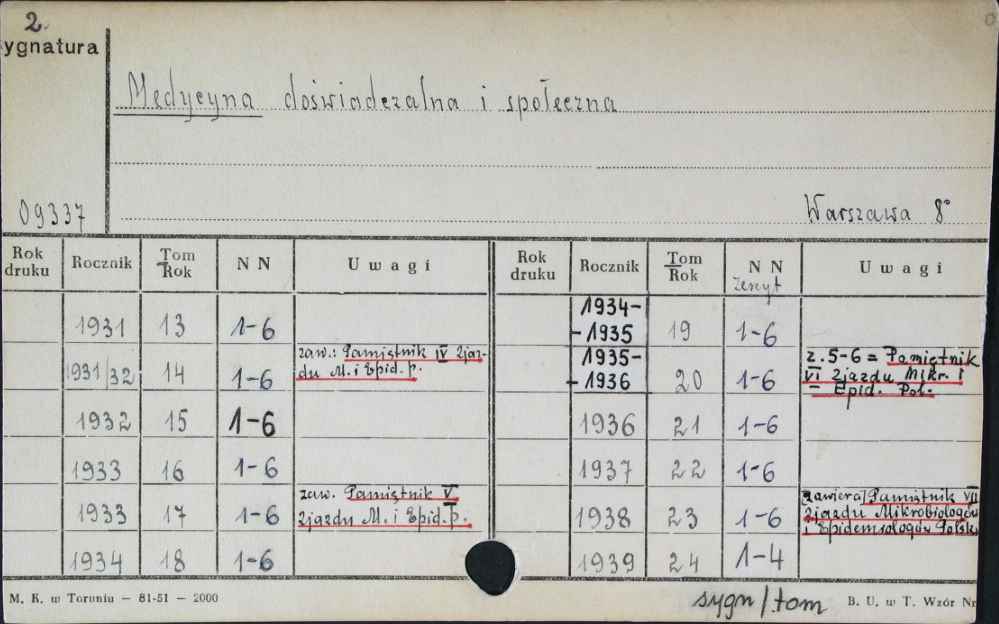 2.
ygnatura
Medycyna doświadczalna i społeczna
09337
Warszawa 8°
Rok druku Rocznik Tom Rok N N Uwagi
1931 13 1-6
1931/32 14 1-6 zaw.: Pamiętnik IV Zjaz-
du M. i Epid. p.
1932 15 1-6
1933 16 1-6
1933 17 1-6 zaw. Pamiętnik V
Zjazdu M. i Epid. p.
1934 18 1-6
Rok druku Rocznik Tom Rok N N zeszyt Uwagi
1934-
-1935 19 1-6
1935-
-1936 20 1-6 z. 5-6 = Pamiętnik
VI Zjazdu Mikr. i
Epid. Pol.
1936 21 1-6
1937 22 1-6
1938 23 1-6 zawiera/Pamiętnik VII
Zjazdu Mikrobiologów
i Epidemiologów Polski
1939 24 1-4
M. K. w Toruniu — 81-51 — 2000
sygn/tom
B. U. w T. Wzór Nr